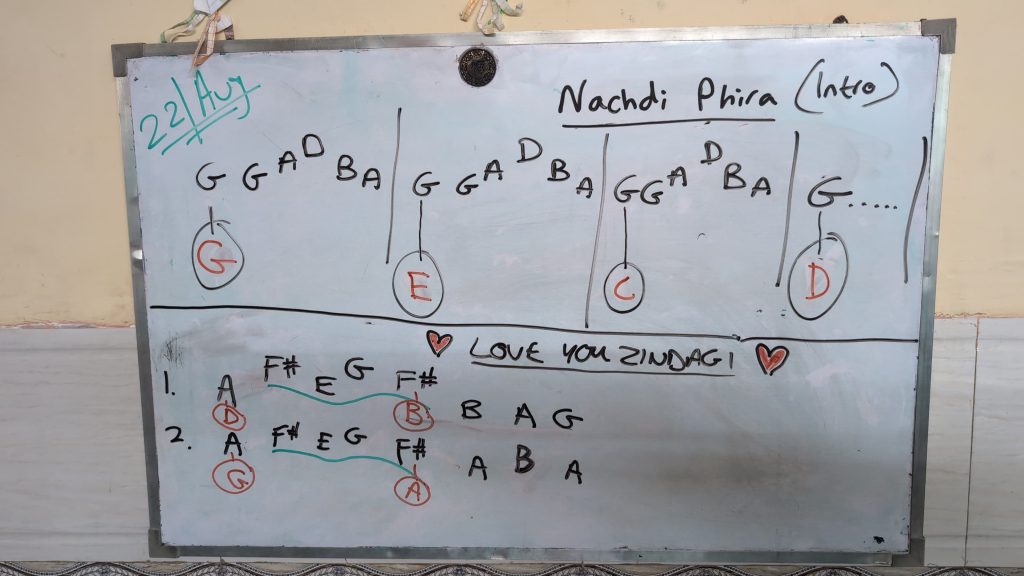 22/Aug
Nachdi Phira (Intro)
G G A D B A | G G A D B A | G G A D B A | G..... |
G E C D
LOVE YOU ZINDAGI
1. A F# E G F# B A G
D B
2. A F# E G F# A B A
G A